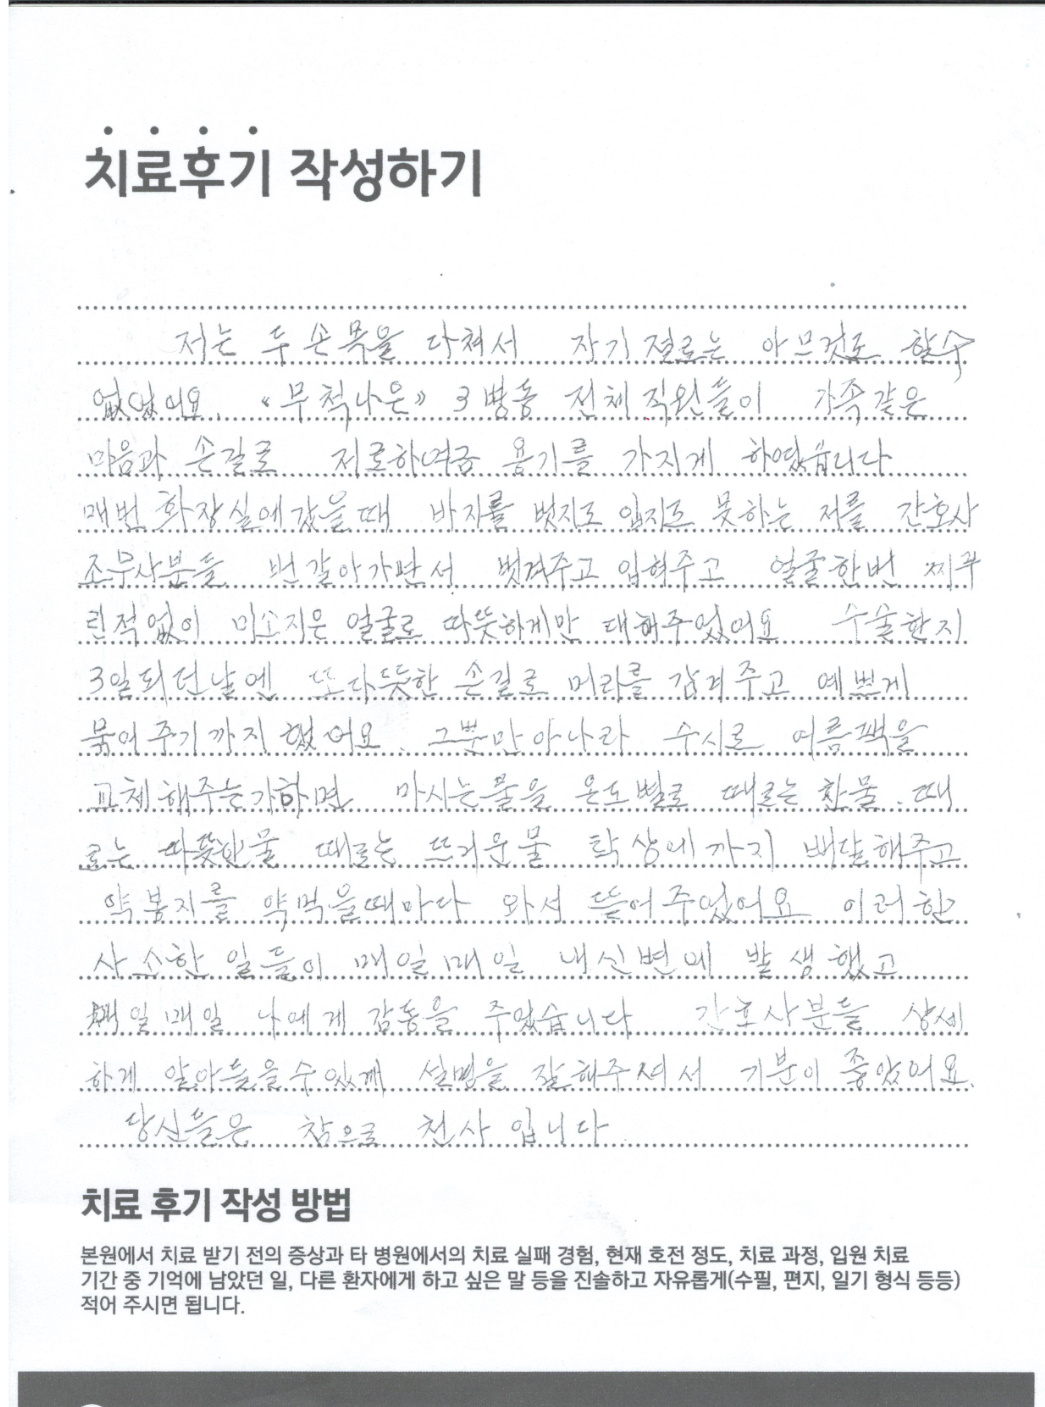 치료후기 작성하기
저는 두 손목을 다쳐서 자기절로는 아므것도 할수
없었어요. 《무척나은》 3병동 전체직원들이 가족같은
마음과 손길로 저로하여금 용기를 가지게 하였습니다
매번 화장실에 갔을때 바지를 벗지도 입지도 못하는 저를 간호사
조무사분들 번갈아가면서 벗겨주고 입혀주고 얼굴한번 찌푸
린적없이 미소지은 얼굴로 따뜻하게만 대해주었어요 수술한지
3일되던날엔 또 다듯한 손길로 머리를 감겨주고 예쁘게
묶어 주기까지 했어요. 그뿐만아니라 수시로 어름팩을
교체해주는가하면 마시는물을 온도별로 때로는 찬물. 때
로는 따뜻한물 때로는 뜨거운물 탁상에까지 배달해주고
약봉지를 약먹을때마다 와서 뜯어주었어요 이러한
사소한 일들이 매일매일 내신변에 발생했고
매일매일 나에게 감동을 주었습니다 간호사분들 상세
하게 알아들을수있게 설명을 잘해주셔서 기분이 좋았어요.
당신들은 참으로 천사입니다.
치료 후기 작성 방법
본원에서 치료 받기 전의 증상과 타 병원에서의 치료 실패 경험, 현재 호전 정도, 치료 과정, 입원 치료
기간 중 기억에 남았던 일, 다른 환자에게 하고 싶은 말 등을 진솔하고 자유롭게(수필, 편지, 일기 형식 등등)
적어 주시면 됩니다.